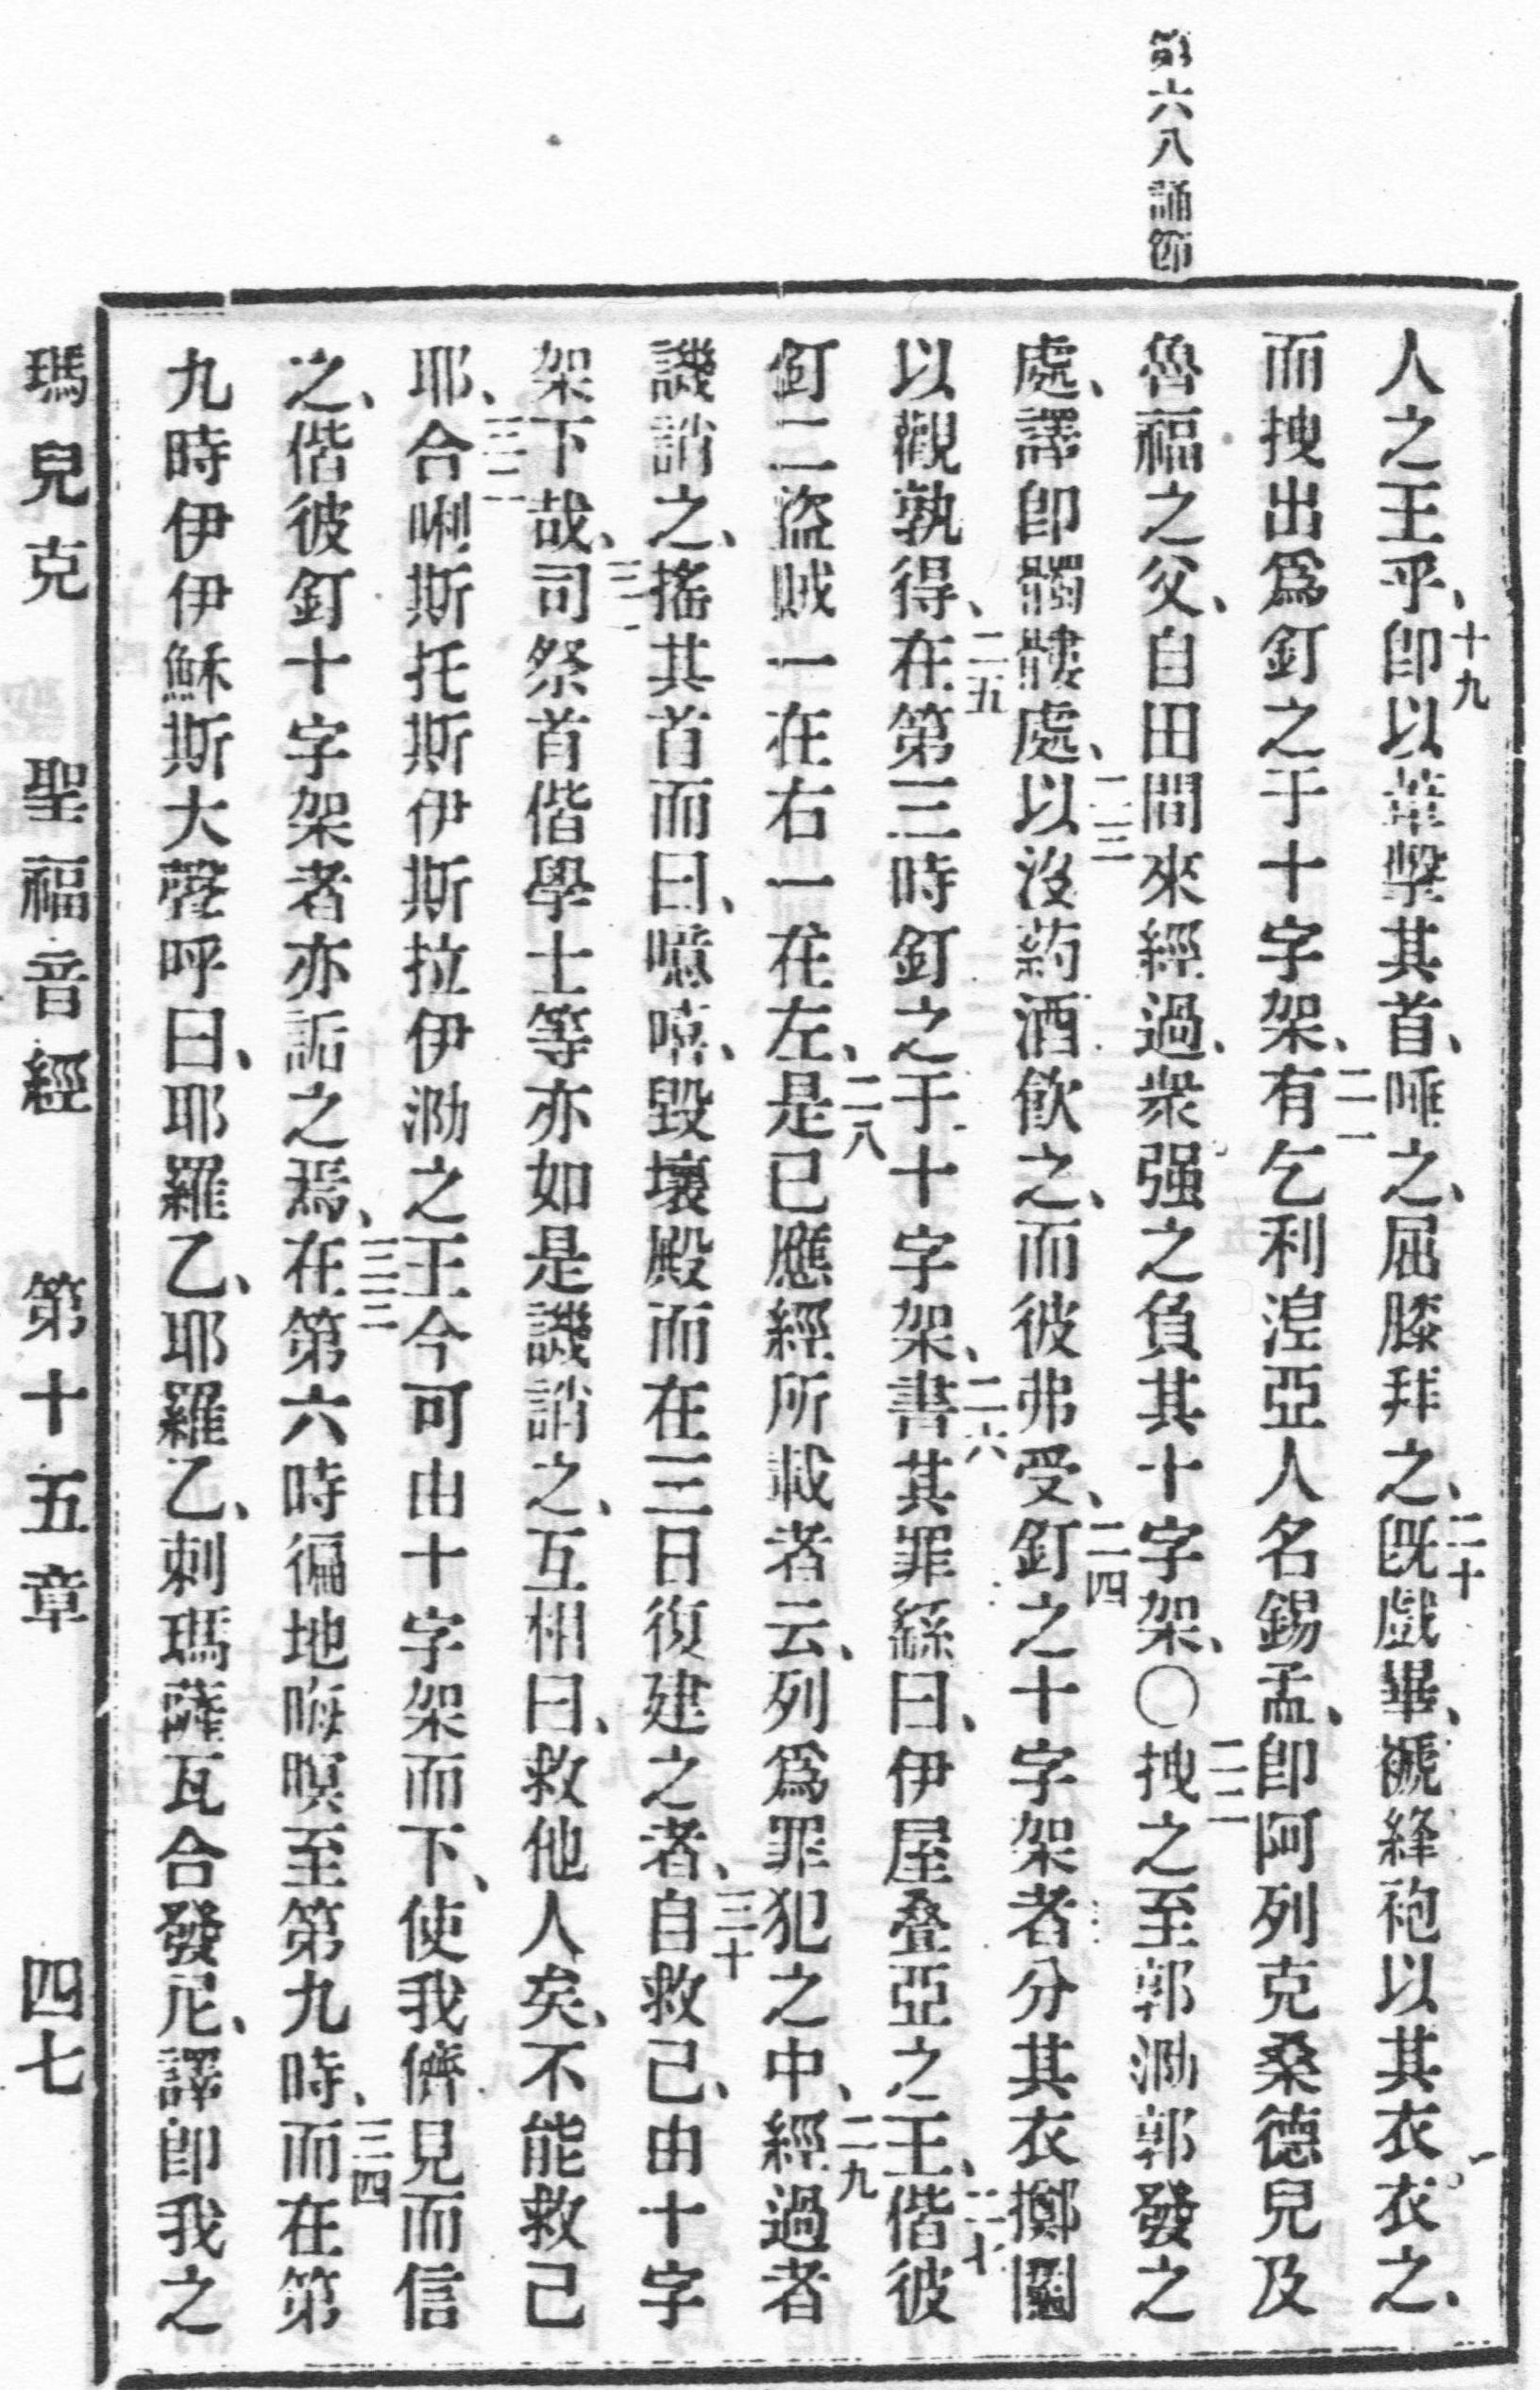 第六八誦節
人之王乎、十九卽以葦擊其首、唾之、屈膝拜之、二十旣戲畢、褫絳袍以其衣衣之、
而拽出爲釘之于十字架、二一有乞利湼亞人名錫孟、卽阿列克桑德兒及
魯福之父、自田間來經過、衆强之負其十字架、〇二二拽之至郭泐郭發之
處、譯卽髑髏處、二三以沒葯酒飮之、而彼弗受、二四釘之十字架者分其衣擲鬮
以觀孰得、二五在第三時釘之于十字架、二六書其罪繇曰、伊屋叠亞之王、二七偕彼
釘二盜賊一在右一在左、二八是已應經所載者云、列爲罪犯之中、二九經過者
譏誚之、搖其首而曰、噫嘻、毀壞殿而在三日復建之者、三十自救己、由十字
架下哉、三一司祭首偕學士等亦如是譏誚之、互相曰、救他人矣、不能救己
耶、三二合唎斯托斯伊斯拉伊泐之王今可由十字架而下、使我儕見而信
之、偕彼釘十字架者亦詬之焉、三三在第六時徧地晦暝至第九時、三四而在第
九時伊伊穌斯大聲呼曰、耶羅乙、耶羅乙、刺瑪薩瓦合發尼、譯卽我之
瑪兒克 聖福音經 第十五章 四七